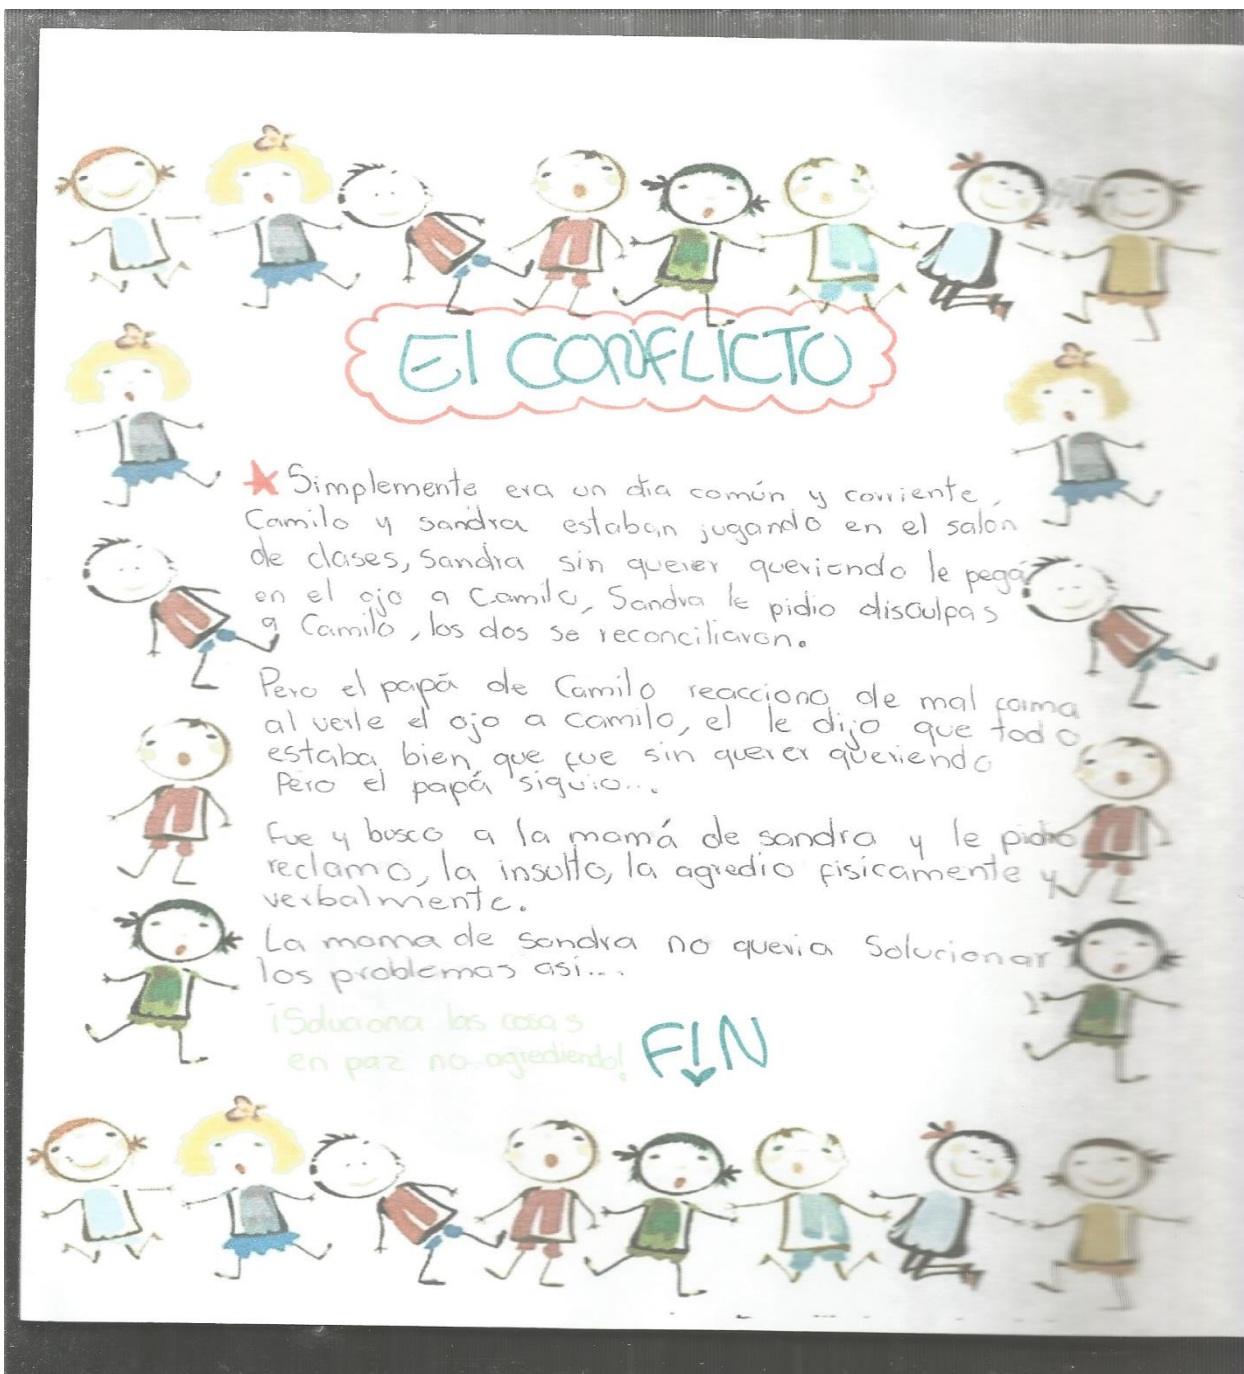 El CONFLICTO
Simplemente era un dia común y corriente,
Camilo y sandra estaban jugando en el salón
de clases, Sandra sin querer queriendo le pegó
en el ojo a Camilo, Sandra le pidio disculpas
a Camilo, los dos se reconciliaron.
Pero el papá de Camilo reacciono de mal forma
al verle el ojo a camilo, el le dijo que todo
estaba bien que fue sin querer queriendo
Pero el papá siguio...
Fue y busco a la mamá de sandra y le pidio
reclamo, la insulto, la agredio fisicamente y
verbalmente.
La mama de sandra no queria Solucionar
los problemas asi...
¡Soluciona las cosas
en paz no agrediendo!
FIN